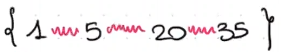 { 1 5 20 35 }